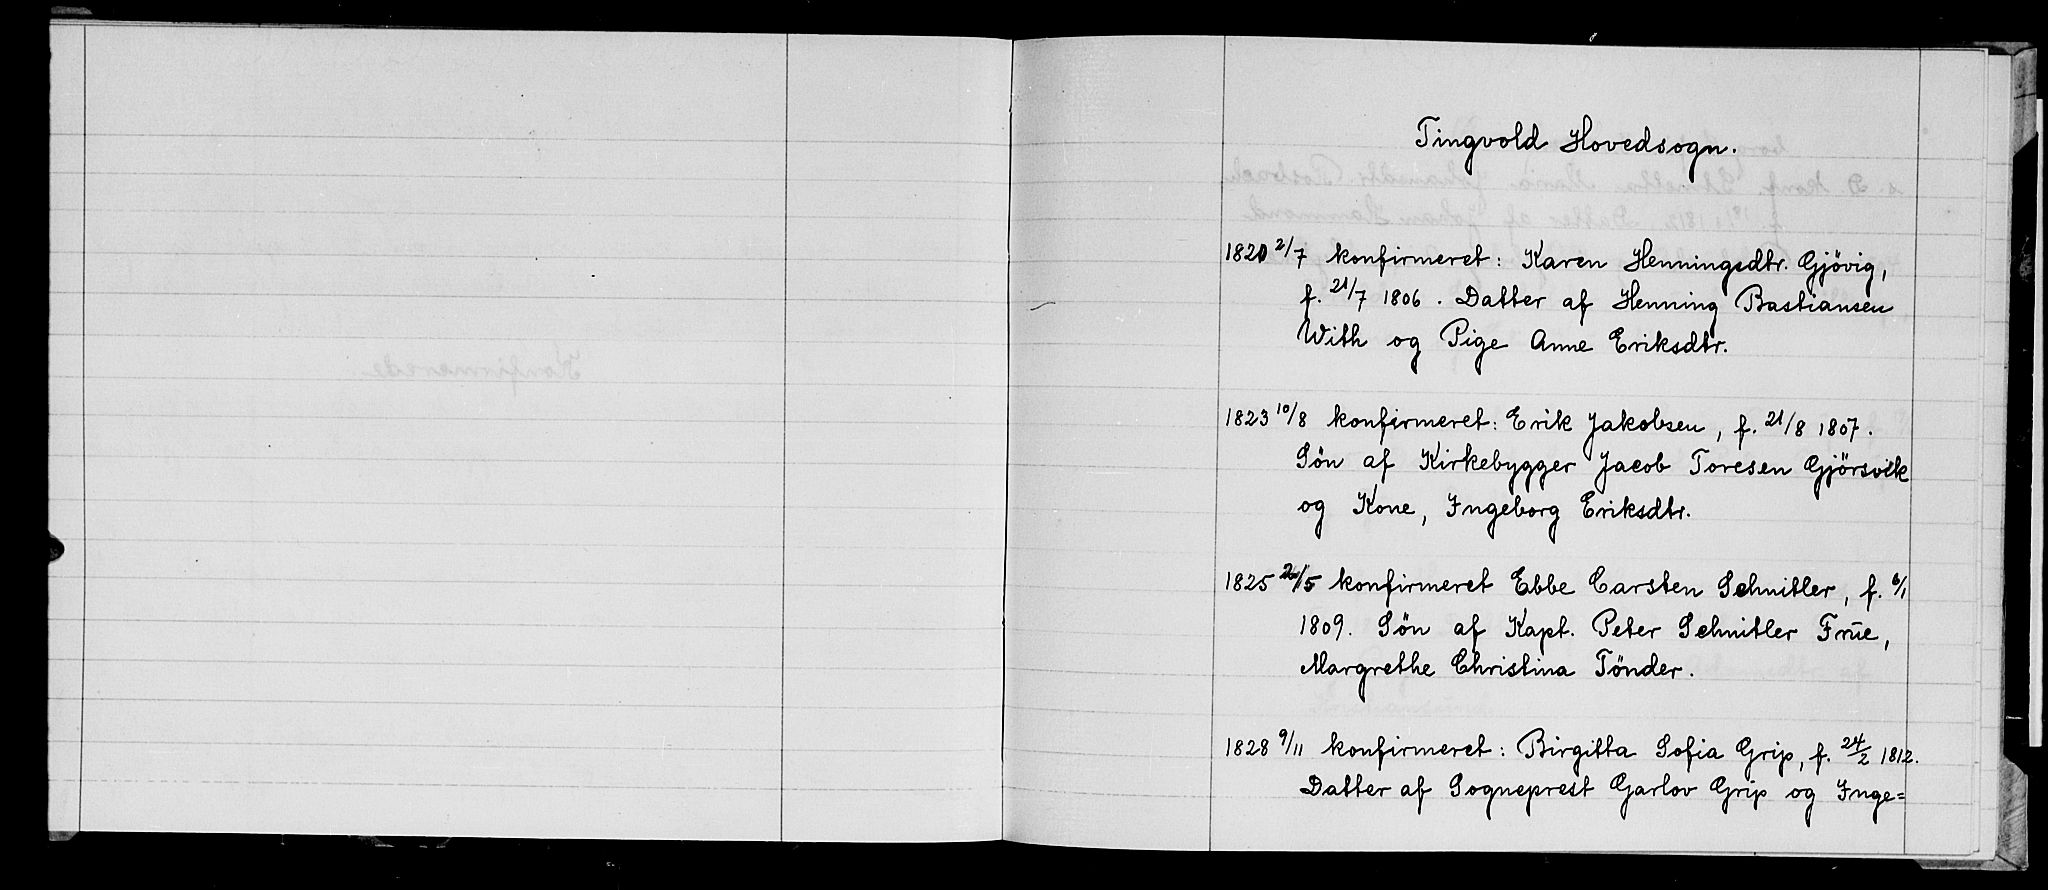 Tingvold Hovedsogn.
1820 2/7 konfirmeret: Karen Henningsdtr. Gjövig,
f. 21/7 1806. Datter af Henning Bastiansen
With og Pige Anne Eriksdtr.
1823 10/8 konfirmeret: Erik Jakobsen, f. 21/8 1807.
Sön af Kirkebygger Jacob Toresen Gjörsvik
og Kone, Ingeborg Eriksdtr.
1825 /5 konfirmeret Ebbe Carsten Schnitler, f. 6/1
1809. Sön af Kapt. Peter Schnitler Frue,
Margrethe Christina Tönder.
1828 9/11 konfirmeret: Birgitta Sofia Grip, f. 24/2 1812.
Datter af Sogneprest Garlov Grip og Inge=